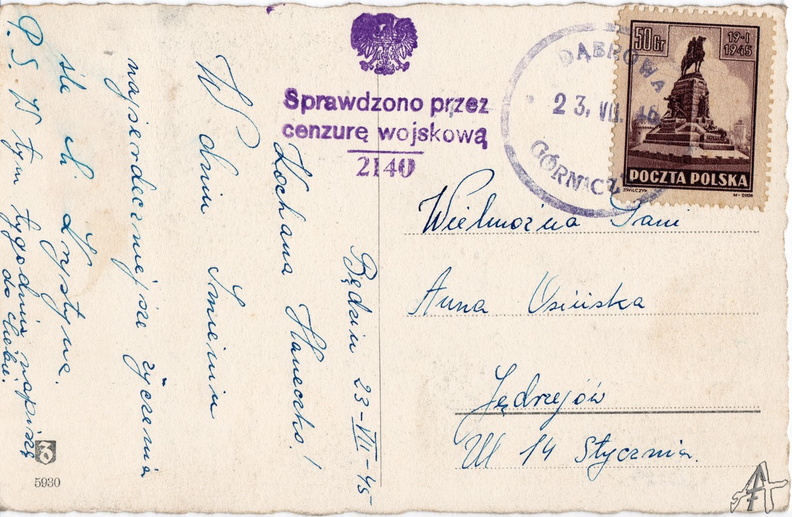 Sprawdzono przez
cenzurę wojskową
2140
DĄBROWA
23. VII. 45
GÓRNICZ
50 Gr
19·I
1945
POCZTA POLSKA
Będzin 23-VII-45
Kochana Haneczko!
W dniu Imienin
najserdeczniejsze życzenia
śle Ci Krystyna.
P.S W tym tygodniu napiszę
do Ciebie.
Wielmożna Pani
Anna Osińska
Jędrzejów
Ul 14 Stycznia.
5930